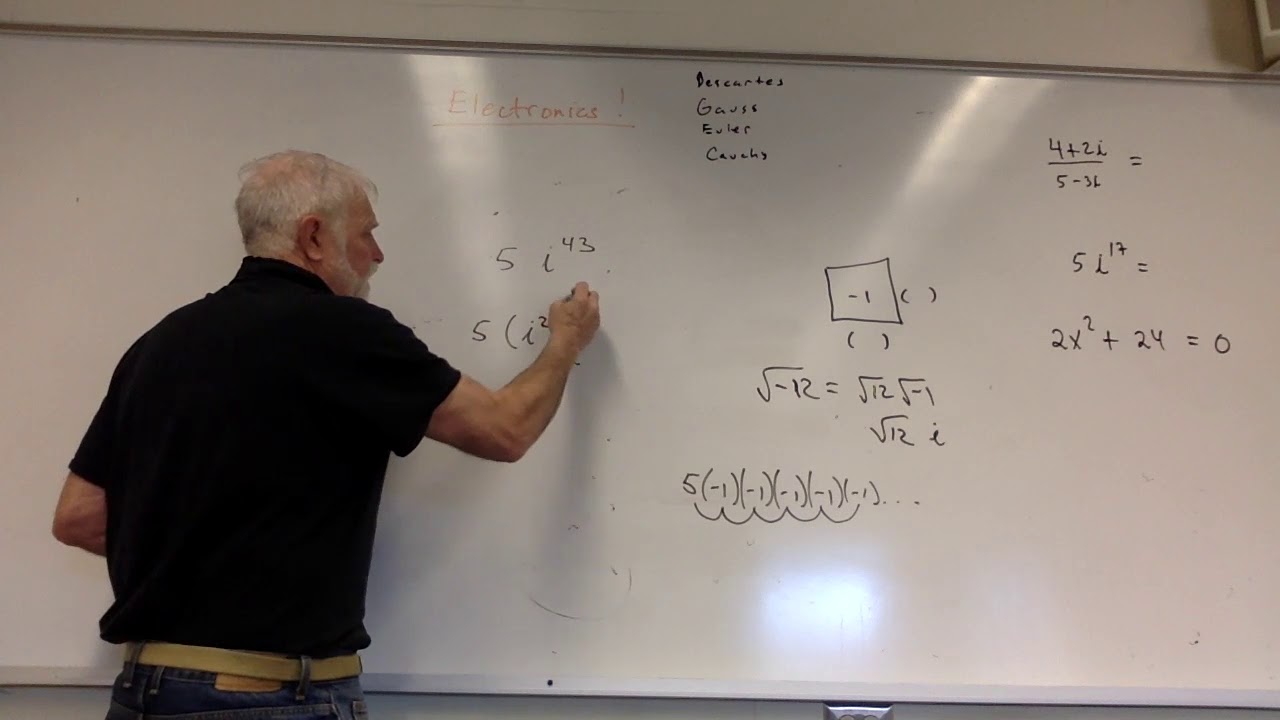 Electronics !
Descartes
Gauss
Euler
Cauchy
5 i^43
5 (i^2
-1 ( )
( )
√-12 = √12 √-1
√12 i
5(-1)(-1)(-1)(-1)(-1)...
4+2i
5-3i =
5i^17 =
2x^2 + 24 = 0